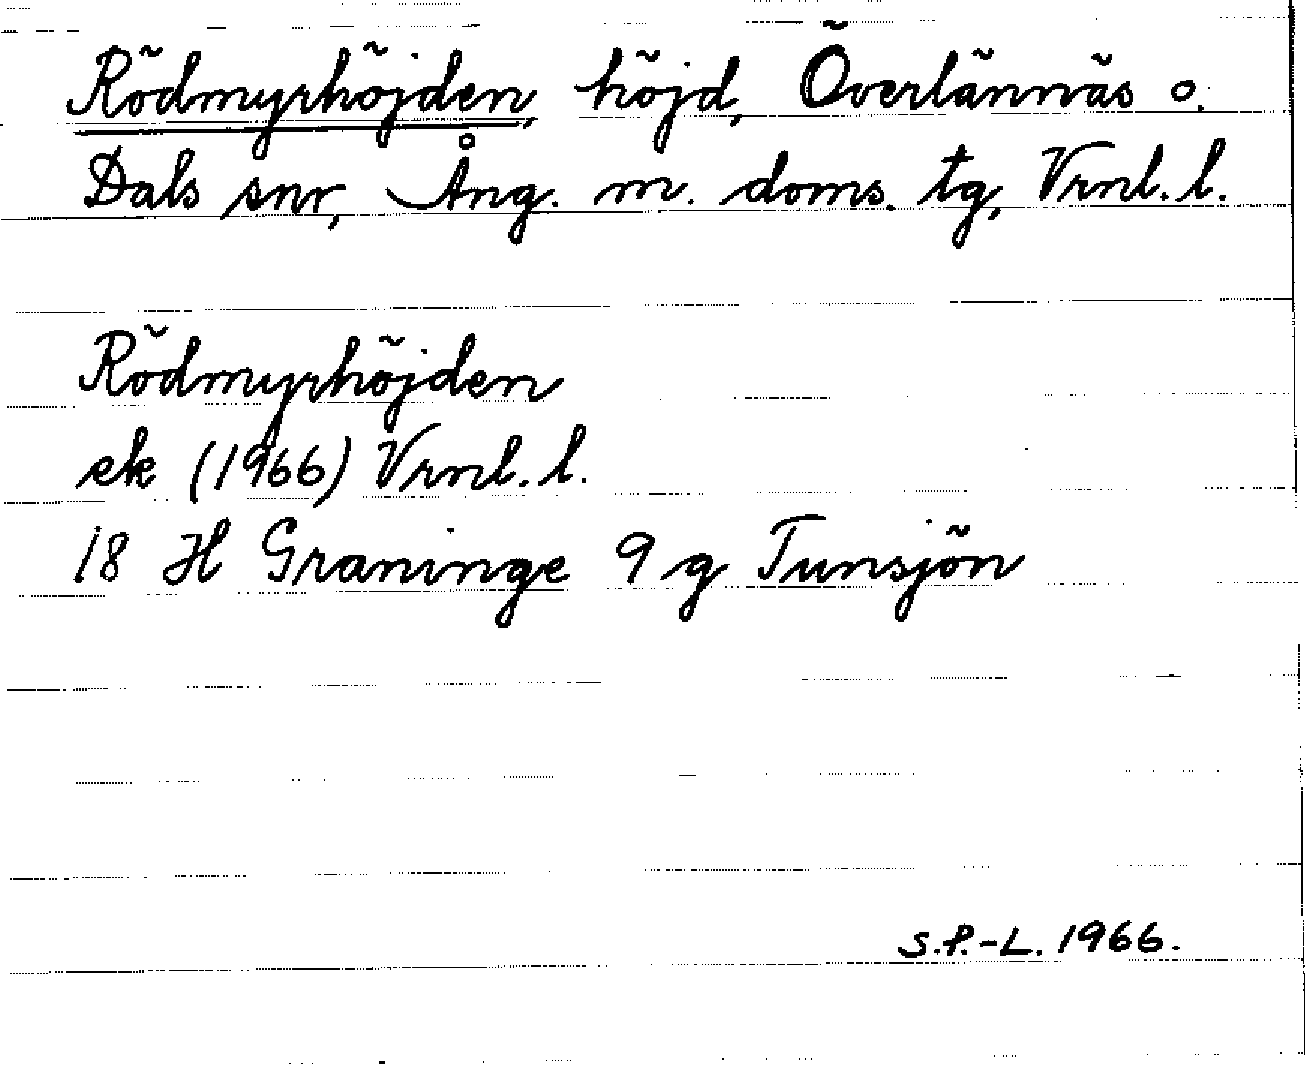 Rödmyrhöjden, höjd, Överlännäs o.
Dals snr, Ång. m. doms. tg, Vrnl. l.
Rödmyrhöjden
ek (1966) Vrnl. l.
18 H Graninge 9 g Tunsjön
S.P.-L. 1966.